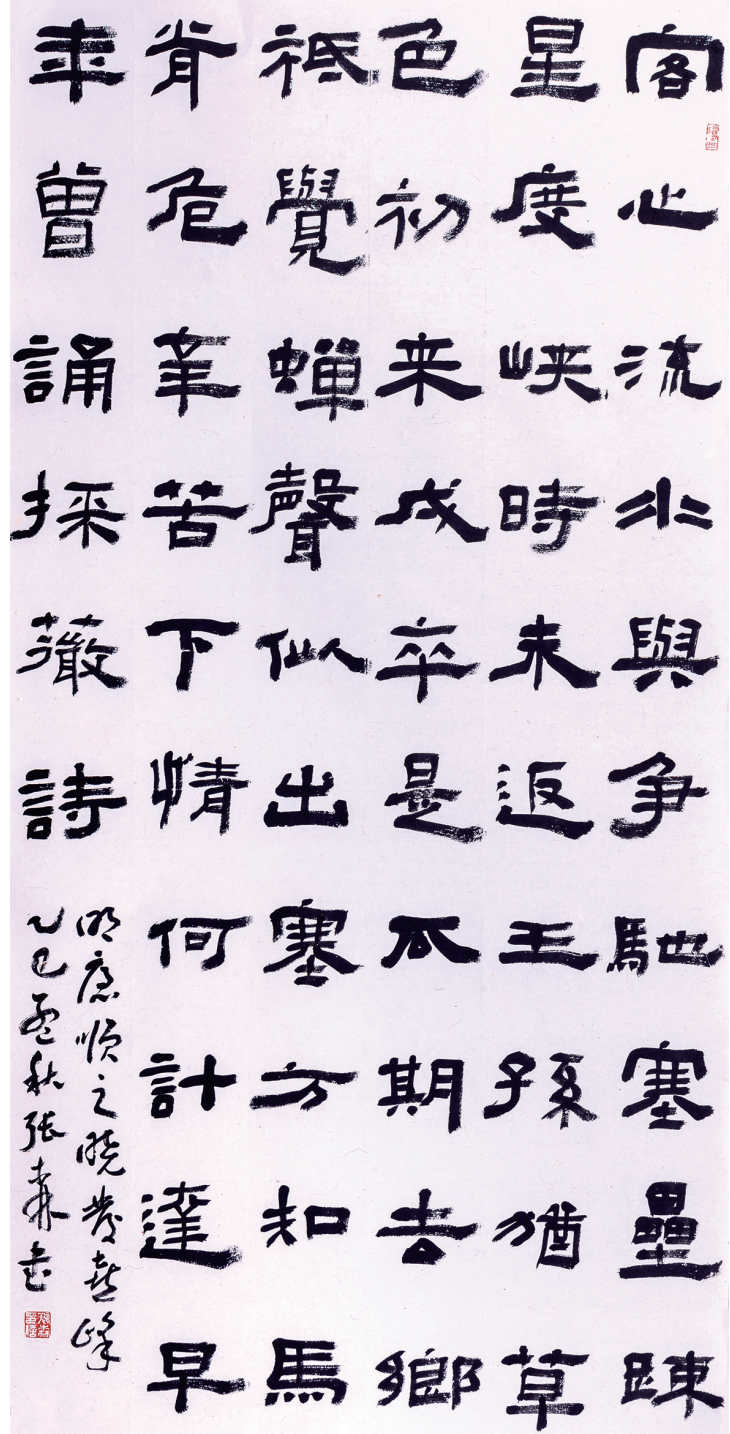 客心流水與争馳塞壘踈
星度峽時未返王孫猶草
色初来戍卒是瓜期去鄉
祗覺蟬聲似出塞方知馬
脊危辛苦下情何計達早
年曾誦採薇詩
明唐順之曉發喜峰
乙巳孟秋張森書